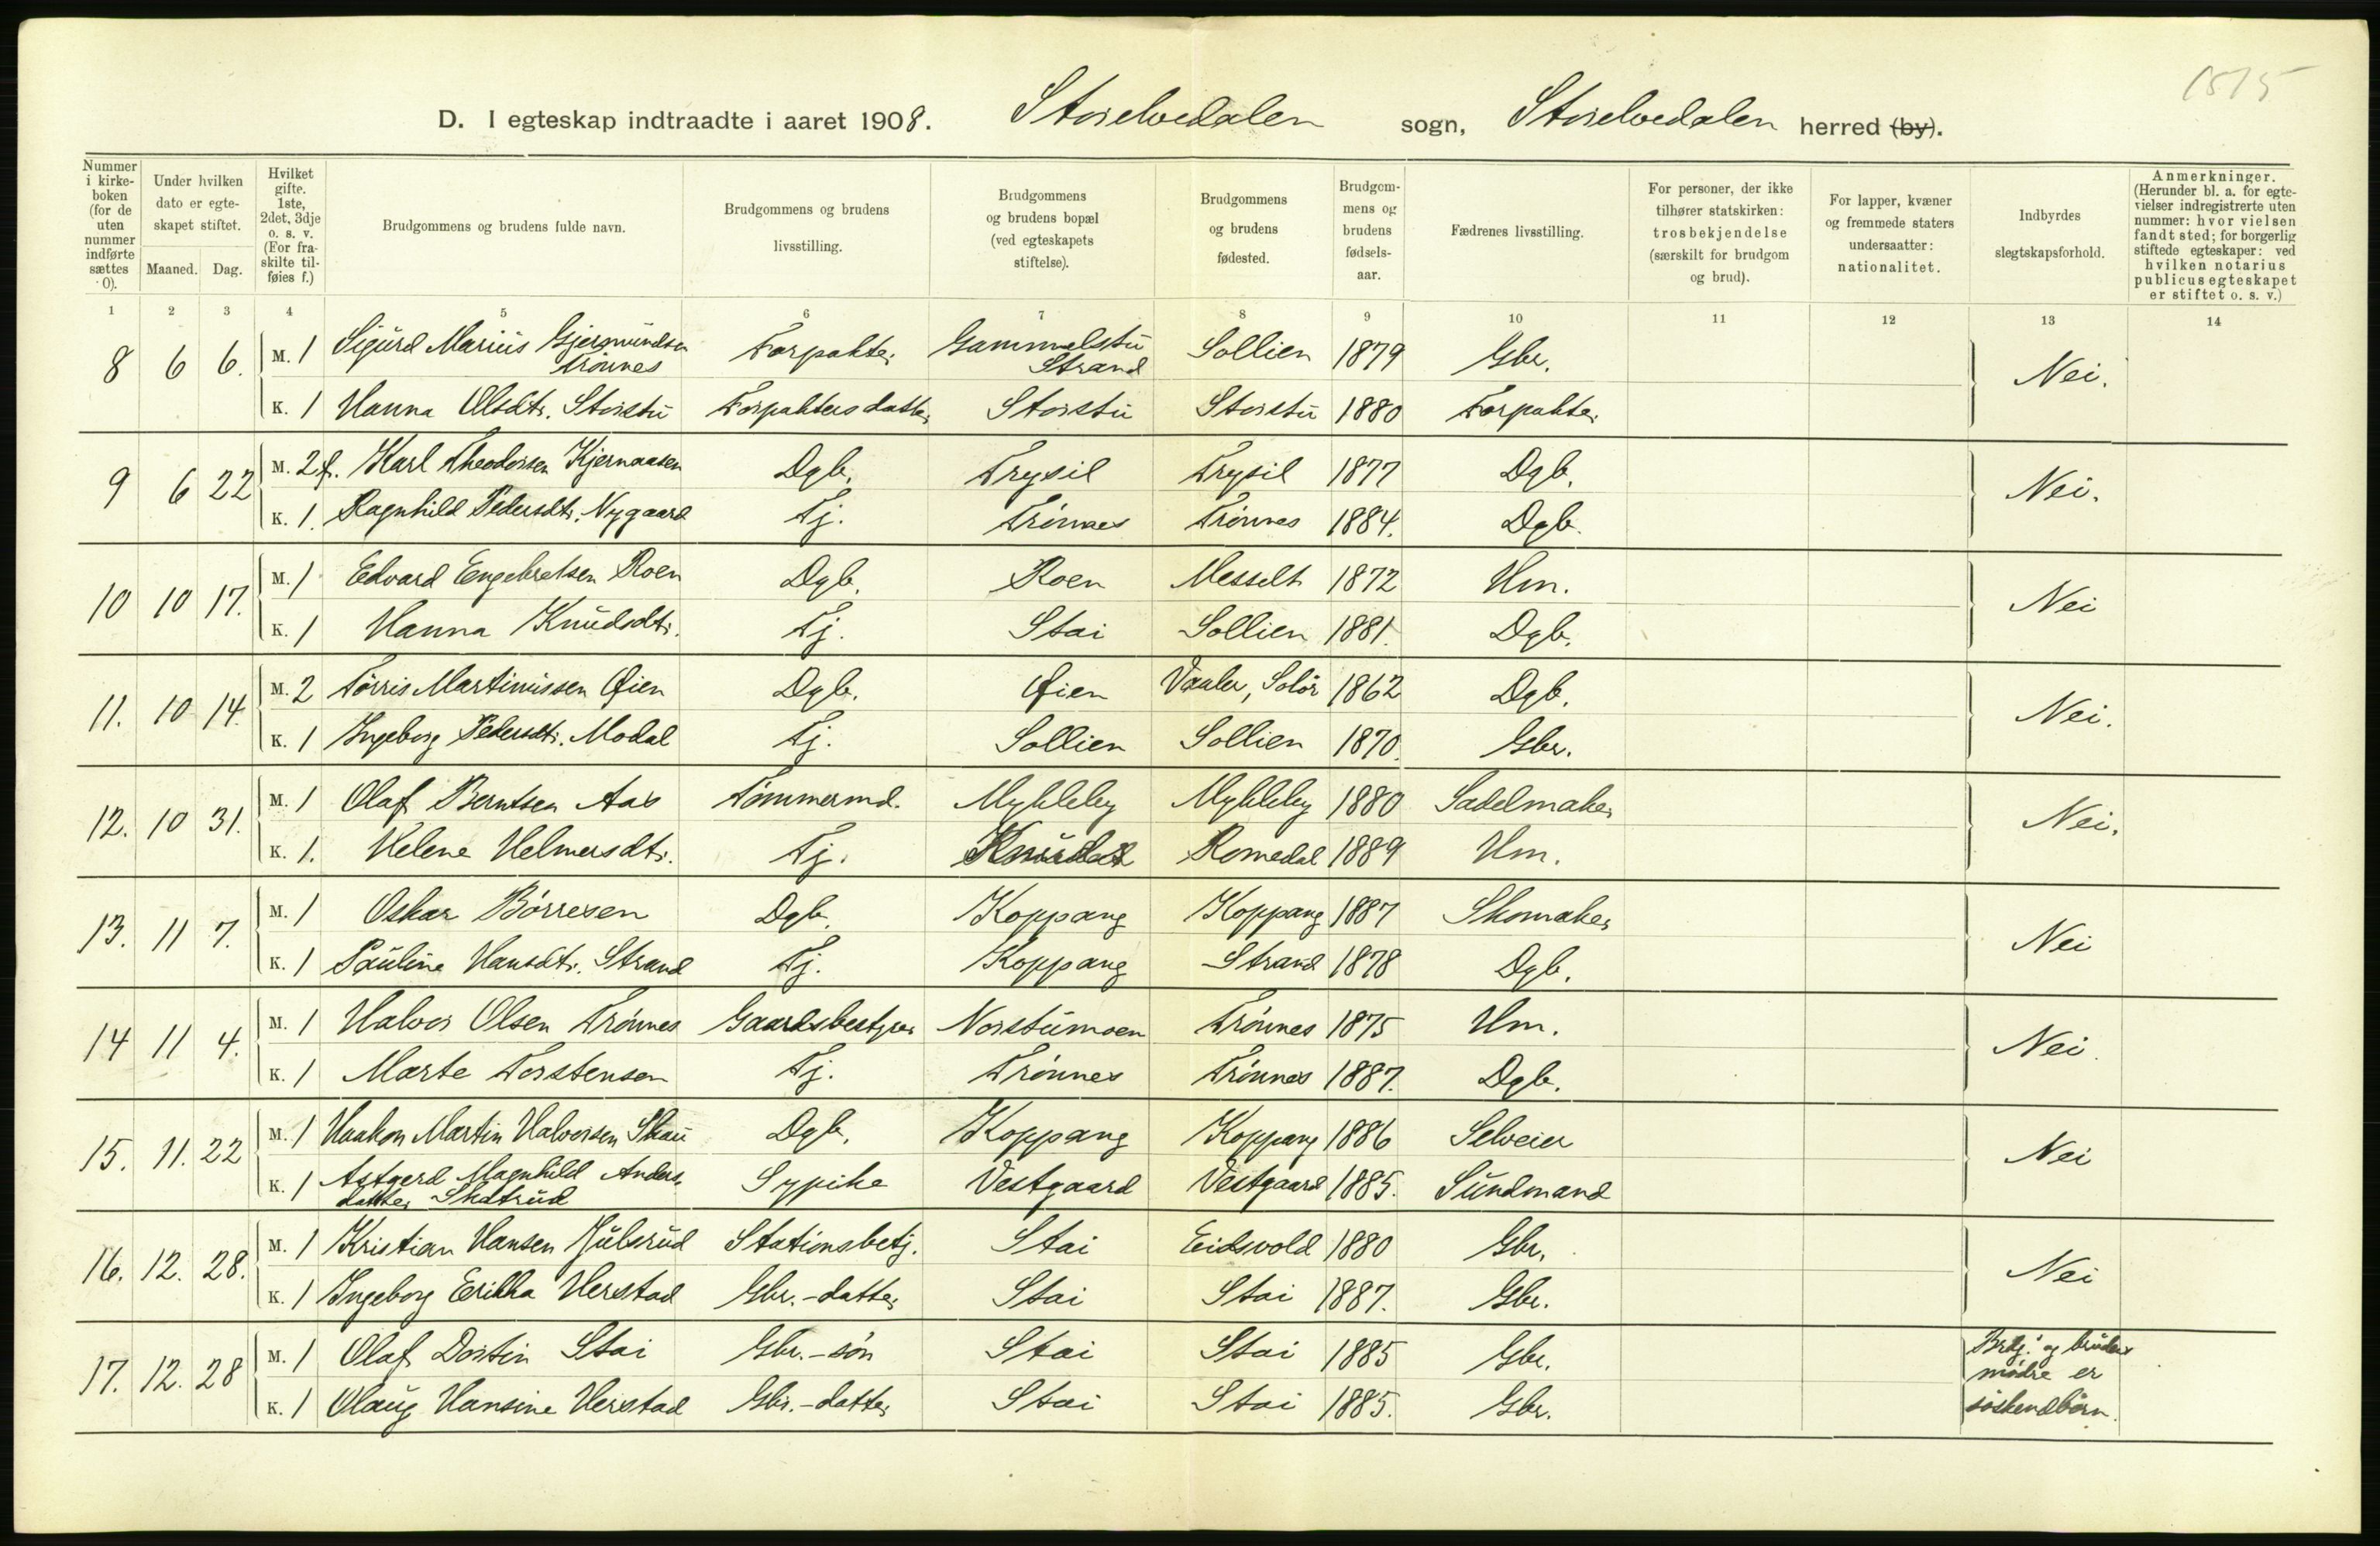 1515
D. I egteskap indtraadte i aaret 1908. Storelvedalen sogn, Storelvedalen herred (by).
Nummer i kirkeboken (for de uten nummer indførte sættes 0).
Under hvilken dato er egteskapet stiftet.
Maaned. Dag.
Hvilket gifte. 1ste, 2det, 3dje o. s. v. (For fraskilte tilføies f.)
Brudgommens og brudens fulde navn.
Brudgommens og brudens livsstilling.
Brudgommens og brudens bopæl (ved egteskapets stiftelse).
Brudgommens og brudens fødested.
Brudgommens og brudens fødselsaar.
Fædrenes livsstilling.
For personer, der ikke tilhører statskirken: trosbekjendelse (særskilt for brudgom og brud).
For lapper, kvæner og fremmede staters undersaatter: nationalitet.
Indbyrdes slegtskapsforhold.
Anmerkninger. (Herunder bl. a. for egtevielser indregistrerte uten nummer: hvor vielsen fandt sted; for borgerlig stiftede egteskaper: ved hvilken notarius publicus egteskapet er stiftet o. s. v.)
1 2 3 4 5 6 7 8 9 10 11 12 13 14
8 6 6. M. 1 Sigurd Marius Gjermundsen Trönnes Forpakter Gammelstu Strand Sollien 1879 Gbr. Nei.
K. 1 Hanna Olsdtr. Storstu Forpaktersdatter Storstu Storstu 1880 Forpakter
9 6 22 M. 2 f. Karl Theodorsen Kjernaasen Dgb. Trysil Trysil 1877 Dgb. Nei.
K. 1. Ragnhild Pedersdtr. Nygaard Tj. Trönnes Trönnes 1884. Dgb.
10 10 17. M. 1 Edvard Engebretsen Roen Dgb. Roen Messelt 1872 Hm. Nei
K. 1 Hanna Knudsdtr. Tj. Stai Sollien 1881. Dgb.
11. 10 14. M. 2 Törris Martinussen Øien Dgb. Øien Vaaler, Solör 1862 Dgb. Nei.
K. 1 Ingeborg Pedersdtr. Modal Tj. Sollien Sollien 1870. Gbr.
12. 10 31. M. 1 Olaf Berntsen Aas Tömmermd. Mykleby Mykleby 1880 Sadelmaker Nei.
K. 1. Helene Helmersdtr. Tj. Romedal 1889 Hm.
13. 11 7. M. 1 Oskar Börresen Dgb. Koppang Koppang 1887 Skomaker Nei
K. 1 Pauline Hansdtr. Strand Tj. Koppang Strand 1878 Dgb.
14 11 4. M. 1 Halvor Olsen Trönnes Gaardsbestyrer Norstumoen Trönnes 1875 Hm. Nei.
K. 1 Marte Torstensen Tj. Trönnes Trönnes 1887. Dgb.
15. 11. 22 M. 1 Haakon Martin Halvorsen Skau Dgb. Koppang Koppang 1886 Selveier Nei
K. 1 Astgerd Magnhild Andersdatter Skatrud Sypike Vestgaard Vestgaard 1885. Sundmand
16. 12. 28. M. 1 Kristian Hansen Julsrud Stationsbetj. Stai Eidsvold 1880 Gbr. Nei
K. 1 Ingeborg Erikka Herstad Gbr.-datter Stai Stai 1887. Gbr.
17. 12. 28 M. 1 Olaf Dortin Stai Gbr.-sön Stai Stai 1885 Gbr. Brdg. og brudens mödre er söskendbörn.
K. 1 Olaug Hansine Herstad Gbr.-datter Stai Stai 1885. Gbr.